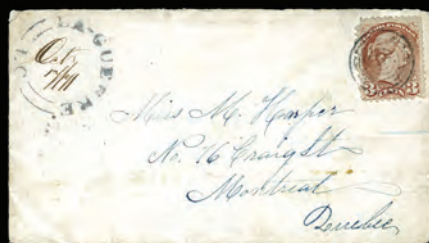 LA-GUERRE
Oct
Miss M. Harper
No. 76 Craig St
Montreal
Quebec
3 3